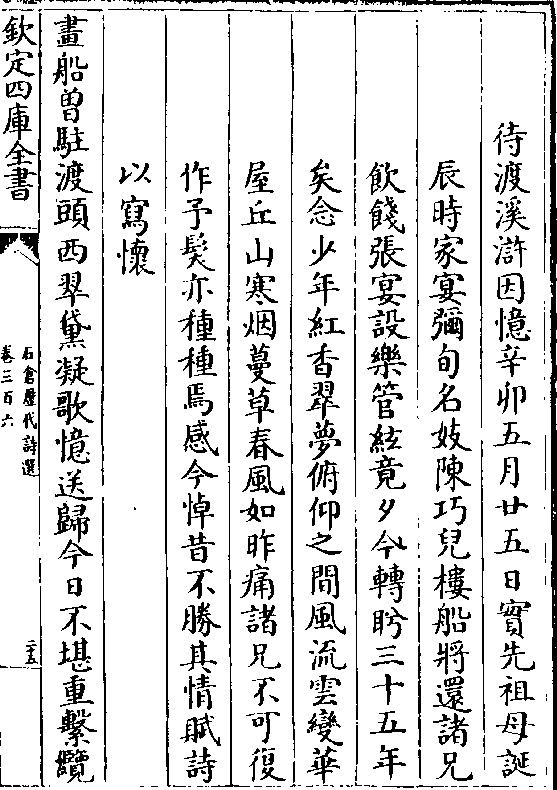 待渡溪滸因憶辛卯五月廿五日實先祖母誕
辰時家宴彌旬名妓陳巧兒樓船將還諸兄
飲餞張宴設樂管絃竟夕今轉盻三十五年
矣念少年紅香翠夢俯仰之間風流雲變華
屋丘山寒烟蔓草春風如昨痛諸兄不可復
作予髮亦種種焉感今悼昔不勝其情賦詩
以寫懷
畫船曽駐渡頭西翠黛凝歌憶送歸今日不堪重繫纜
欽定四庫全書
石倉歷代詩選
卷三百六
二五